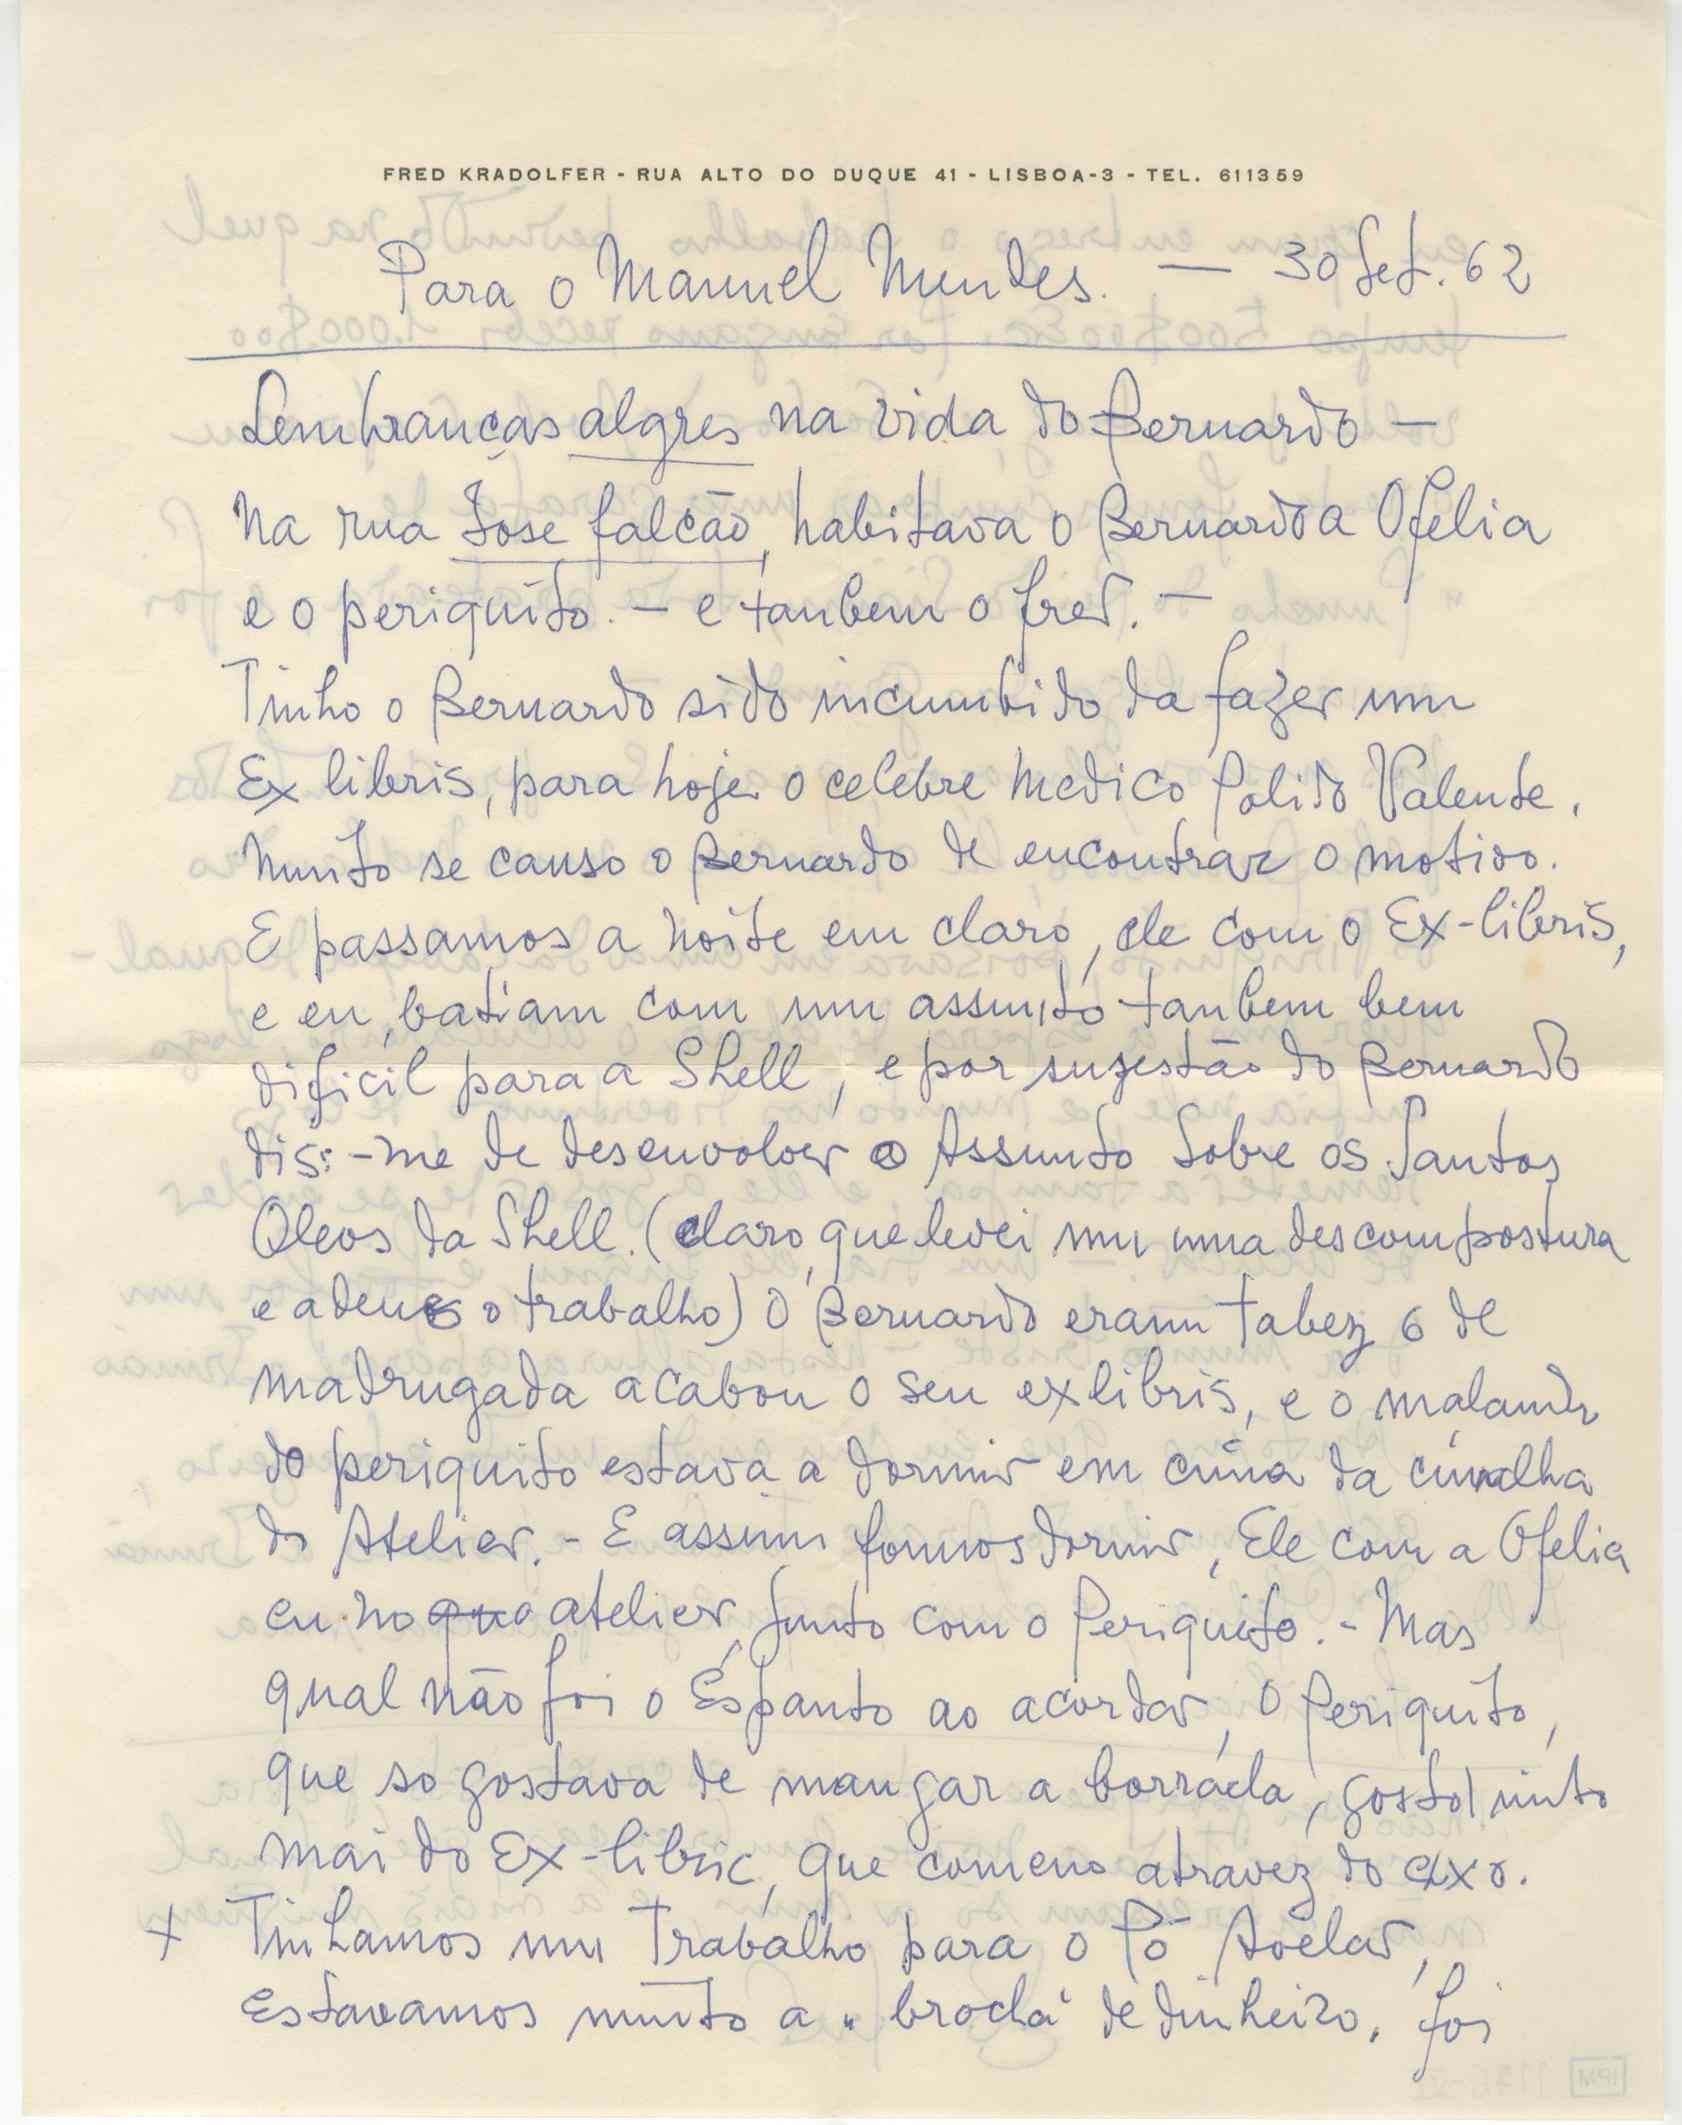 FRED KRADOLFER - RUA ALTO DO DUQUE 41 - LISBOA-3 - TEL. 611359
Para o Manuel Mendes. — 30 Set. 62
Lembranças algres na vida do Bernardo —
Na rua Jose falcão, habitava o Bernardo a Ofelia
e o periquito. — e tanbem o fred. —
Tinho o Bernardo sido incumbido da fazer um
Ex libris, para hoje o celebre medico Polido Valente.
Muito se canso o Bernardo de encontrar o motivo.
E passamos a noite em claro, ele com o Ex-libris,
e eu, batiam com um assunto tanbem bem
dificil para a Shell, e por sugestão do Bernardo
dis:-me de desenvolver o Assunto Sobre os Santos
Oleos da Shell. (claro, que levei um uma descompostura
e adeus o trabalho) O Bernardo eram talvez 6 de
madrugada acabou o seu exlibris, e o malandr
do periquito estava a dormir em cima da
do Atelier. - E assim fomos dormir, Ele com a Ofelia
eu no quo atelier, junto com o Periquito. - Mas
qual não foi o Espanto ao acordar, o Periquito,
que so gostava de mangar a borracla, gosto muito
mai do Ex-libric, que comeno atravez do eixo.
+ Tinhamos um Trabalho para o Pó Avelar,
Estavamos muito a "brocha" de dinheiro. foi